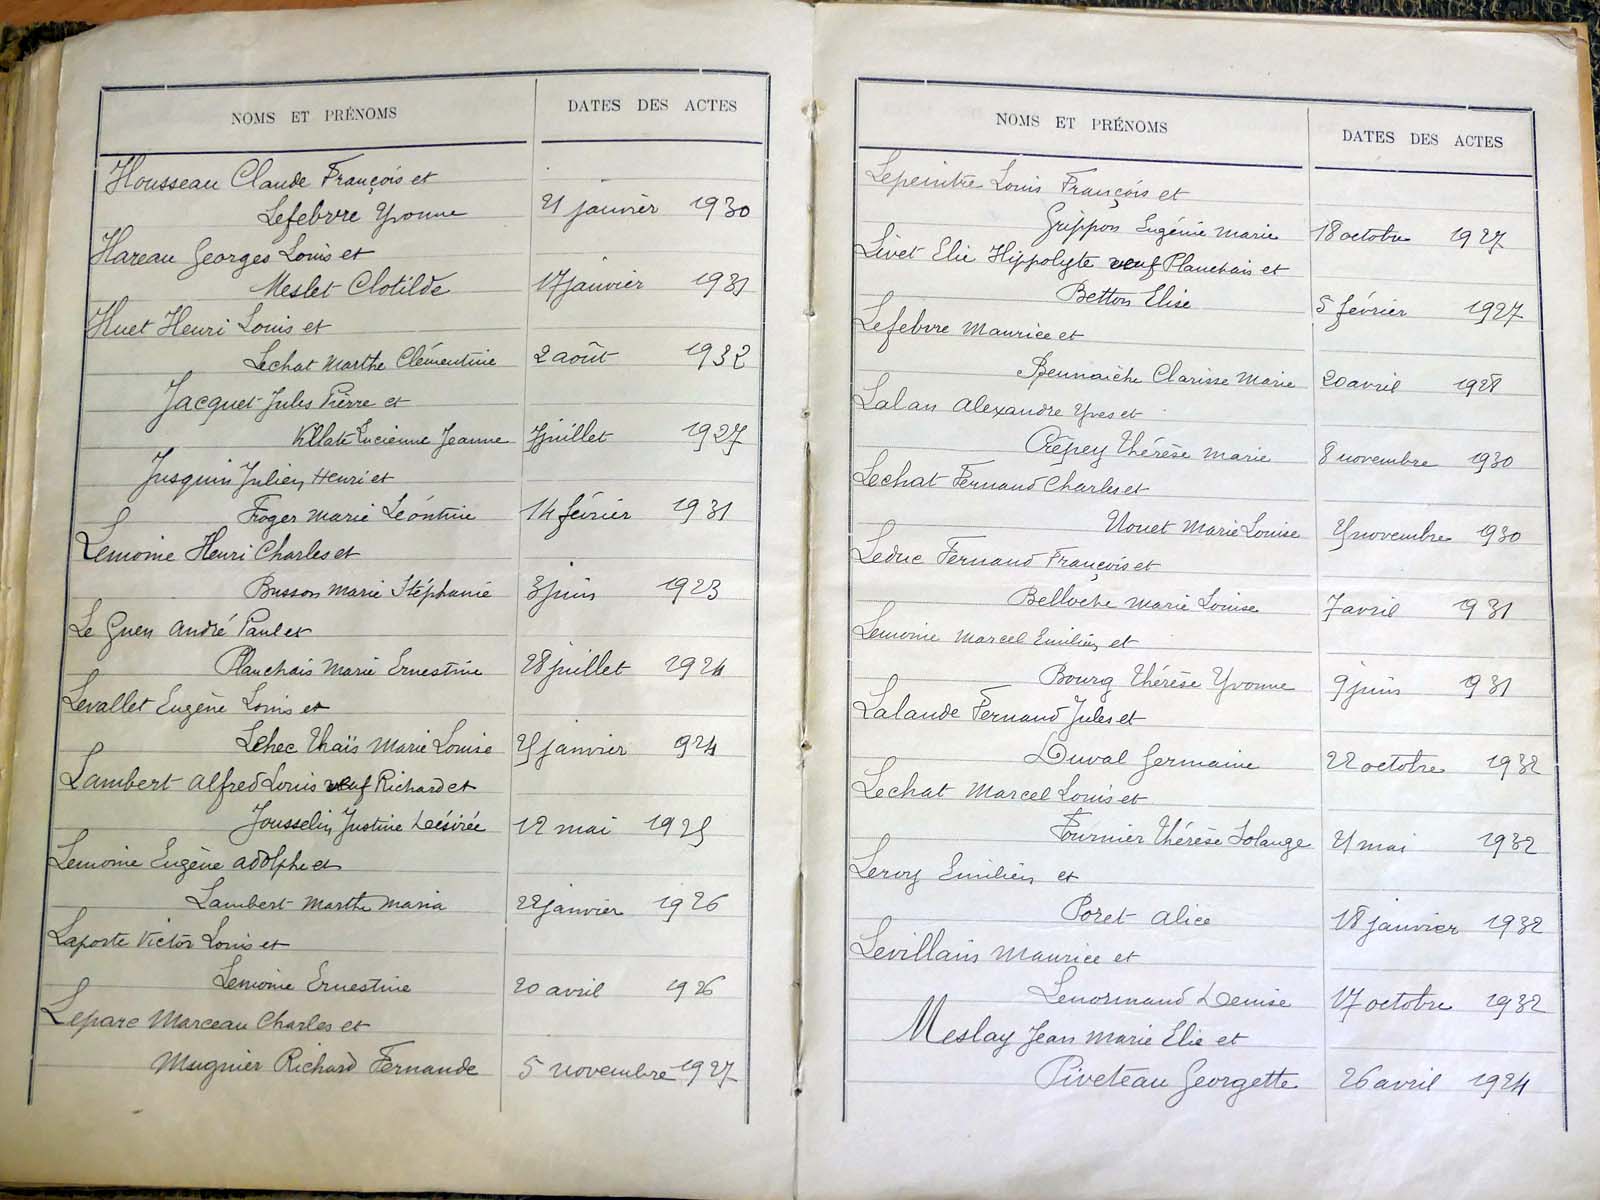 NOMS ET PRÉNOMS DATES DES ACTES
Housseau Claude François et
Lefebvre Yvonne 21 janvier 1930
Hareau Georges Louis et
Meslet Clotilde 17 janvier 1931
Huet Henri Louis et
Lechat Marthe Clémentine 2 août 1932
Jacquet Jules Pierre et
Lucienne Jeanne juillet 1927
Jusquin Julien Henri et
Froger Marie Léontine 14 février 1931
Lemoine Henri Charles et
Busson Marie Stéphanie 3 juin 1923
Le Guen André Paul et
Planchais Marie Ernestine 28 juillet 1924
Levallet Eugène Louis et
Lehec Thaïs Marie Louise janvier 924
Lambert Alfred Louis veuf Richard et
Jousselin Justine Désirée 12 mai 1925
Lemoine Eugène Adolphe et
Lambert Marthe Maria 22 janvier 1926
Laporte Victor Louis et
Lemoine Ernestine 20 avril 1926
Lepare Marceau Charles et
Mugnier Richard Fernande 5 novembre 1927
NOMS ET PRÉNOMS DATES DES ACTES
Lepeintre Louis François et
Grippon Eugénie Marie 18 octobre 1927
Livet Elie Hippolyte veuf Planchais et
Betton Elise 5 février 1927
Lefebvre Maurice et
Clarisse Marie 20 avril 1928
Lalan Alexandre Yves et
Crépey Thérèse Marie 8 novembre 1930
Lechat Fernand Charles et
Nouet Marie Louise novembre 1930
Leduc Fernand François et
Belloche Marie Louise 7 avril 1931
Lemoine Marcel Emilien et
Bourg Thérèse Yvonne 9 juin 1931
Lalande Fernand Jules et
Duval Germaine 22 octobre 1932
Lechat Marcel Louis et
Fournier Thérèse Solange 21 mai 1932
Leroy Emilien et
Poret Alice 18 janvier 1932
Levillain Maurice et
Lenormand Denise 17 octobre 1932
Meslay Jean Marie Elie et
Piveteau Georgette 26 avril 1924